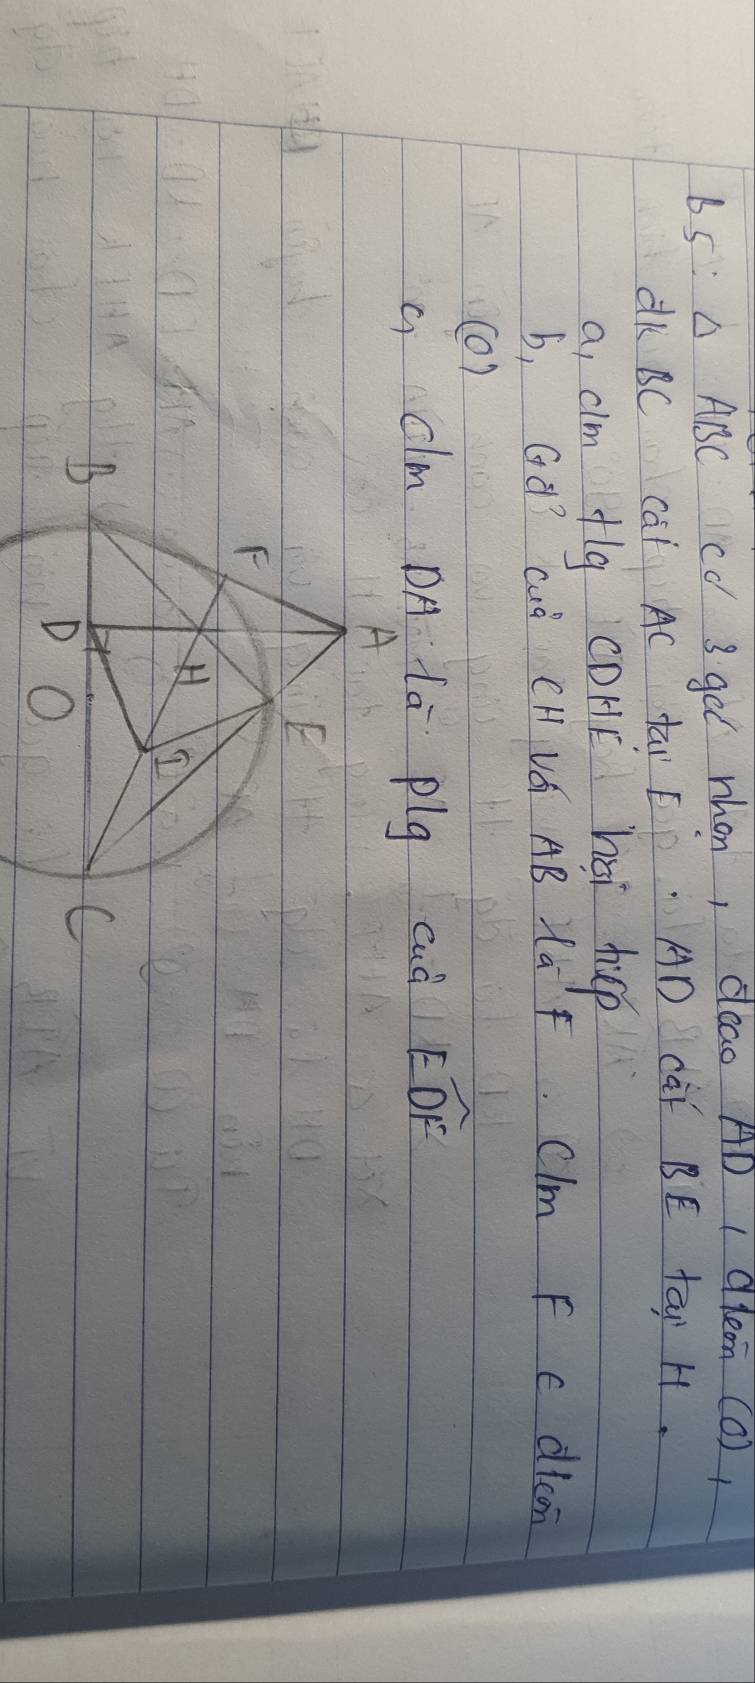 b5: Δ ABC có 3 góc nhọn, đcao AD, đtròn (O),
đk BC cắt AC tại E. AD cắt BE tại H.
a, c/m t/g CDHE nội tiếp
b, Gđ' của CH và AB là F. C/m F ∈ đtròn
(O)
c, c/m DA là p/g của EDF
A
F
E
B
H
I
D
O
C